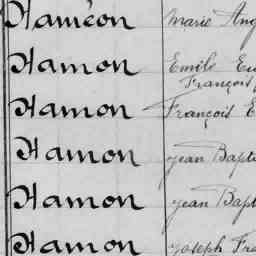 Haméon Marie Ang
Hamon Emile Eu
François
Hamon François E
Hamon Jean Bapti
Hamon Jean Bapt
Hamon Joseph Fra